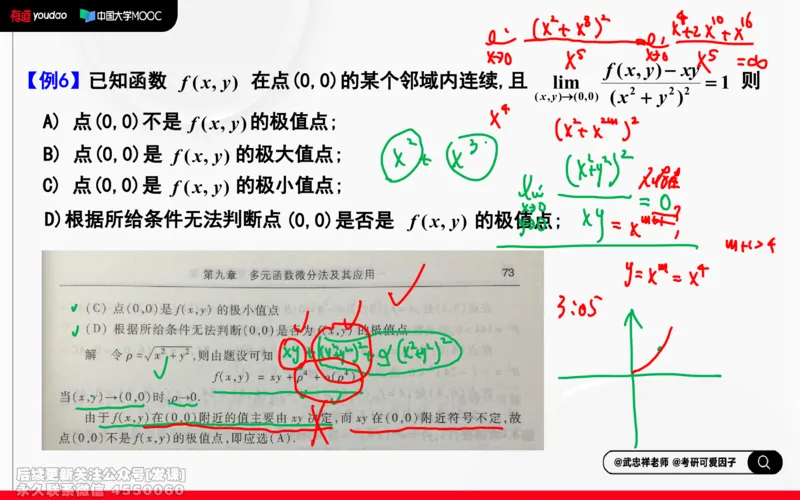 有道youdao 中国大学MOOC
【例6】已知函数 f(x, y) 在点(0,0)的某个邻域内连续,且 lim (x,y)→(0,0) f(x, y) − xy / (x² + y²)² = 1 则
A) 点(0,0)不是 f(x, y)的极值点;
B) 点(0,0)是 f(x, y) 的极大值点;
C) 点(0,0)是 f(x, y) 的极小值点;
D)根据所给条件无法判断点(0,0)是否是 f(x, y) 的极值点;
(x²+x⁸)² / x⁵ = x⁴+2x¹⁰+x¹⁶ / x⁵ = ∞
x→0
x→0
x⁴
x² + x³
(x²+y²)² / xy = 0
y=xᵐ=x⁴
m+1>4
3:05
第九章 多元函数微分法及其应用 73
(C) 点(0,0)是f(x,y)的极小值点
(D) 根据所给条件无法判断(0,0)是否为f(x,y)的极值点
解 令ρ=√x²+y²,则由题设可知 xy+(x²+y²)²+o(x²+y²)²
f(x,y) = xy+ρ⁴+o(ρ⁴)
当(x,y)→(0,0)时,ρ→0.
由于f(x,y)在(0,0)附近的值主要由xy决定,而xy在(0,0)附近符号不定,故
点(0,0)不是f(x,y)的极值点,即应选(A).
@武忠祥老师 @考研可爱因子
后续更新关注公众号[发课]
永久联系微信 4550060